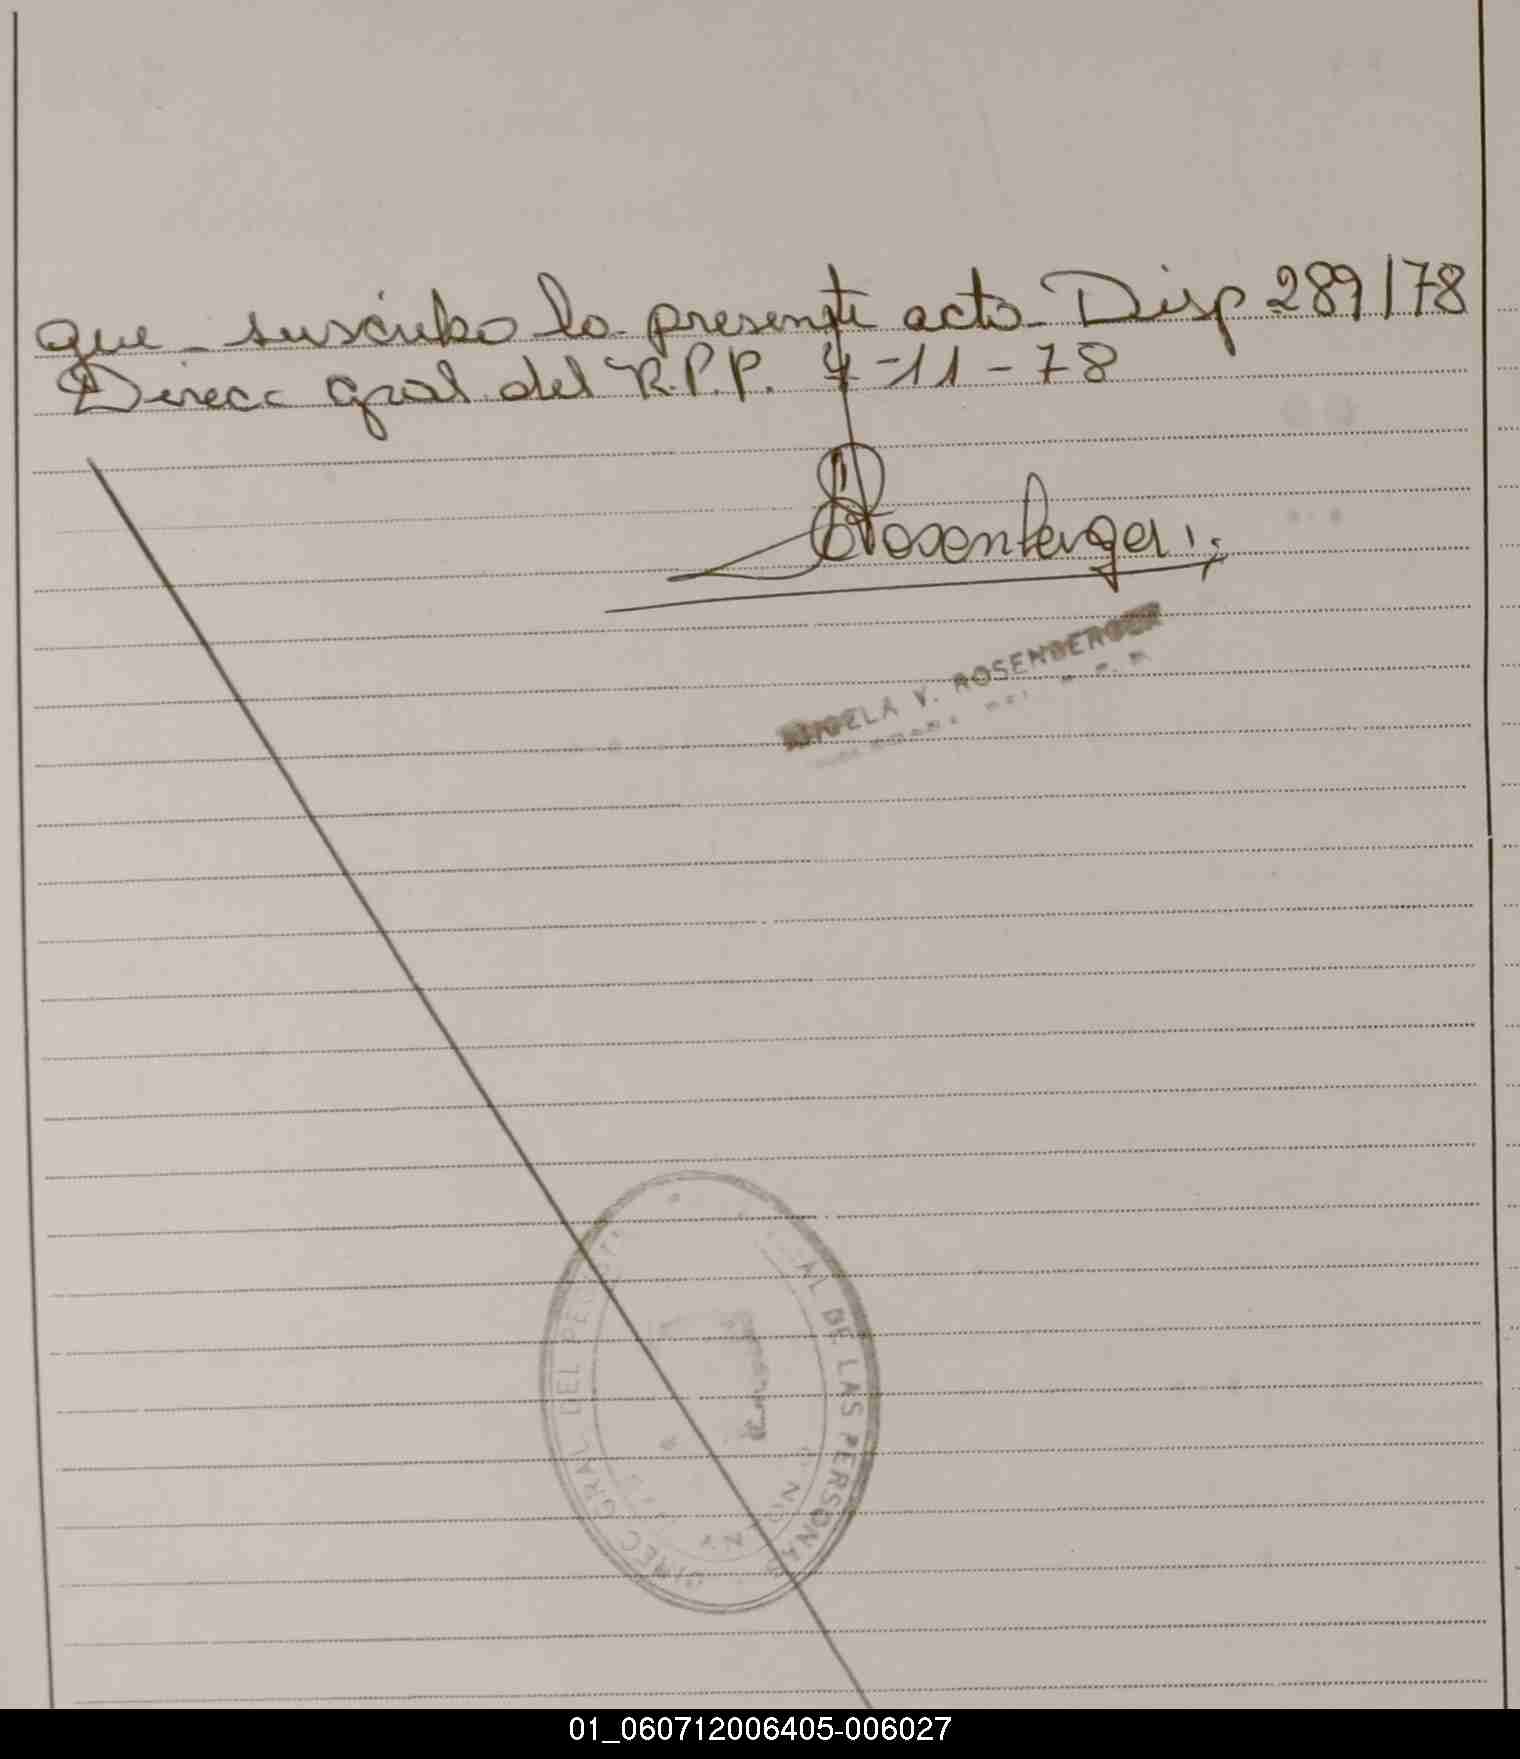 que suscribo la presente acta Disp 289/78
Direcc gral del R.P.P. 7-11-78
Rosenberger
ANGELA V. ROSENBERGER
DIREC GRAL DEL REGIST AL DE LAS PERSONAS
01_060712006405-006027